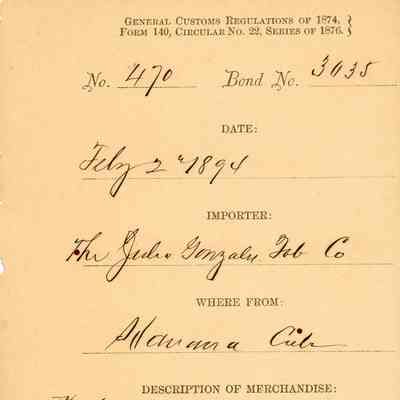 GENERAL CUSTOMS REGULATIONS OF 1874.
FORM 140, CIRCULAR NO. 22, SERIES OF 1876.
No. 470 Bond No. 3035
DATE:
Feby 2" 1894
IMPORTER:
The Pedro Gonzales Tob Co
WHERE FROM:
Havana Cuba
DESCRIPTION OF MERCHANDISE: